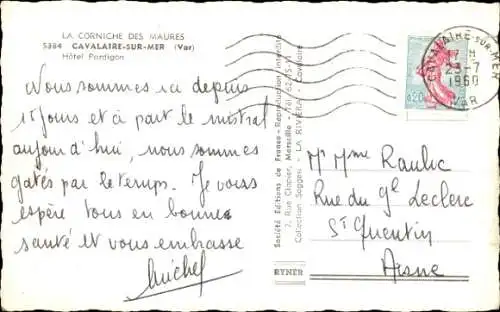 LA CORNICHE DES MAURES
5384 CAVALAIRE-SUR-MER (Var)
Hôtel Pardigon
Nous sommes ici depuis
15 jours et à part le mistral
aujourd'hui, nous sommes
gatés par le temps. Je vous
espère tous en bonne
santé et vous embrasse
Michel
Société Editions de France - Reproduction interdite
7, Rue Clapier, Marseille - Tél. 62-15-14
Collection Soggesi - LA RIVIERA - Cavalaire
RYNER
CAVALAIRE-SUR-MER
7 H
23-7
1960
VAR
0,20
Mr Mme Raulic
Rue du Gl Leclerc
St Quentin
Aisne